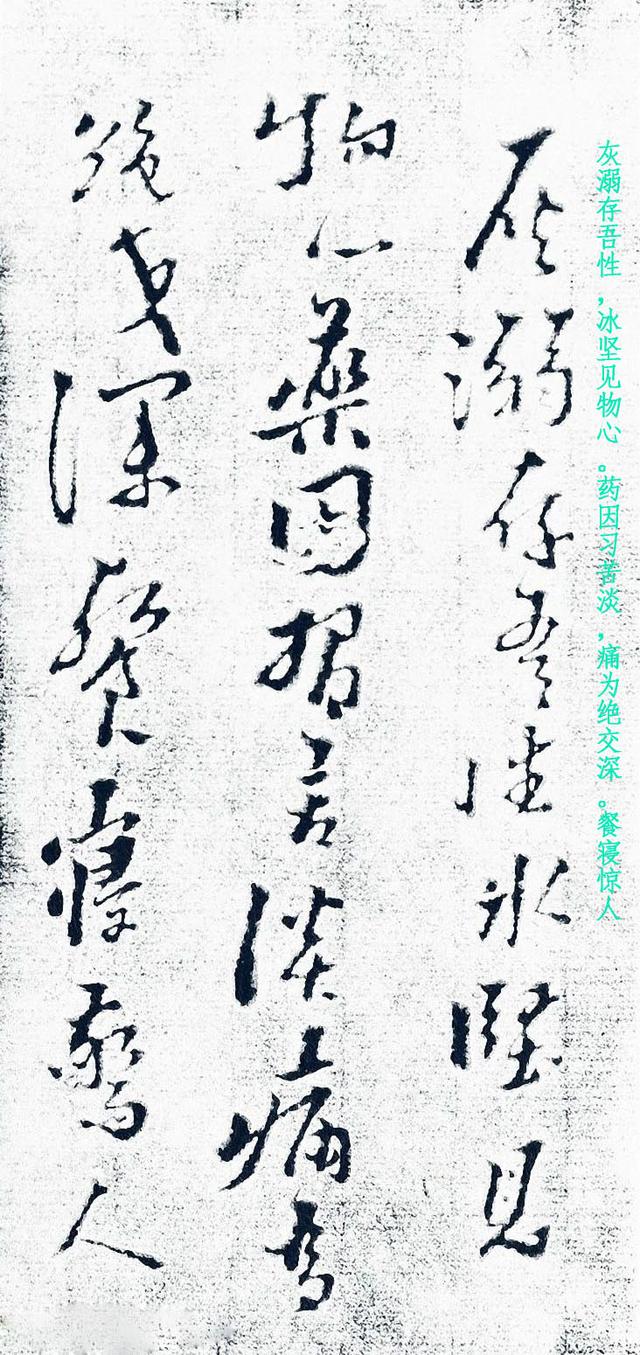 灰溺存吾性，冰坚见物心。药因习苦淡，痛为绝交深。餐寝惊人
灰溺存吾性冰堅見
物心藥因習苦淡痛為
絶交深餐寢驚人